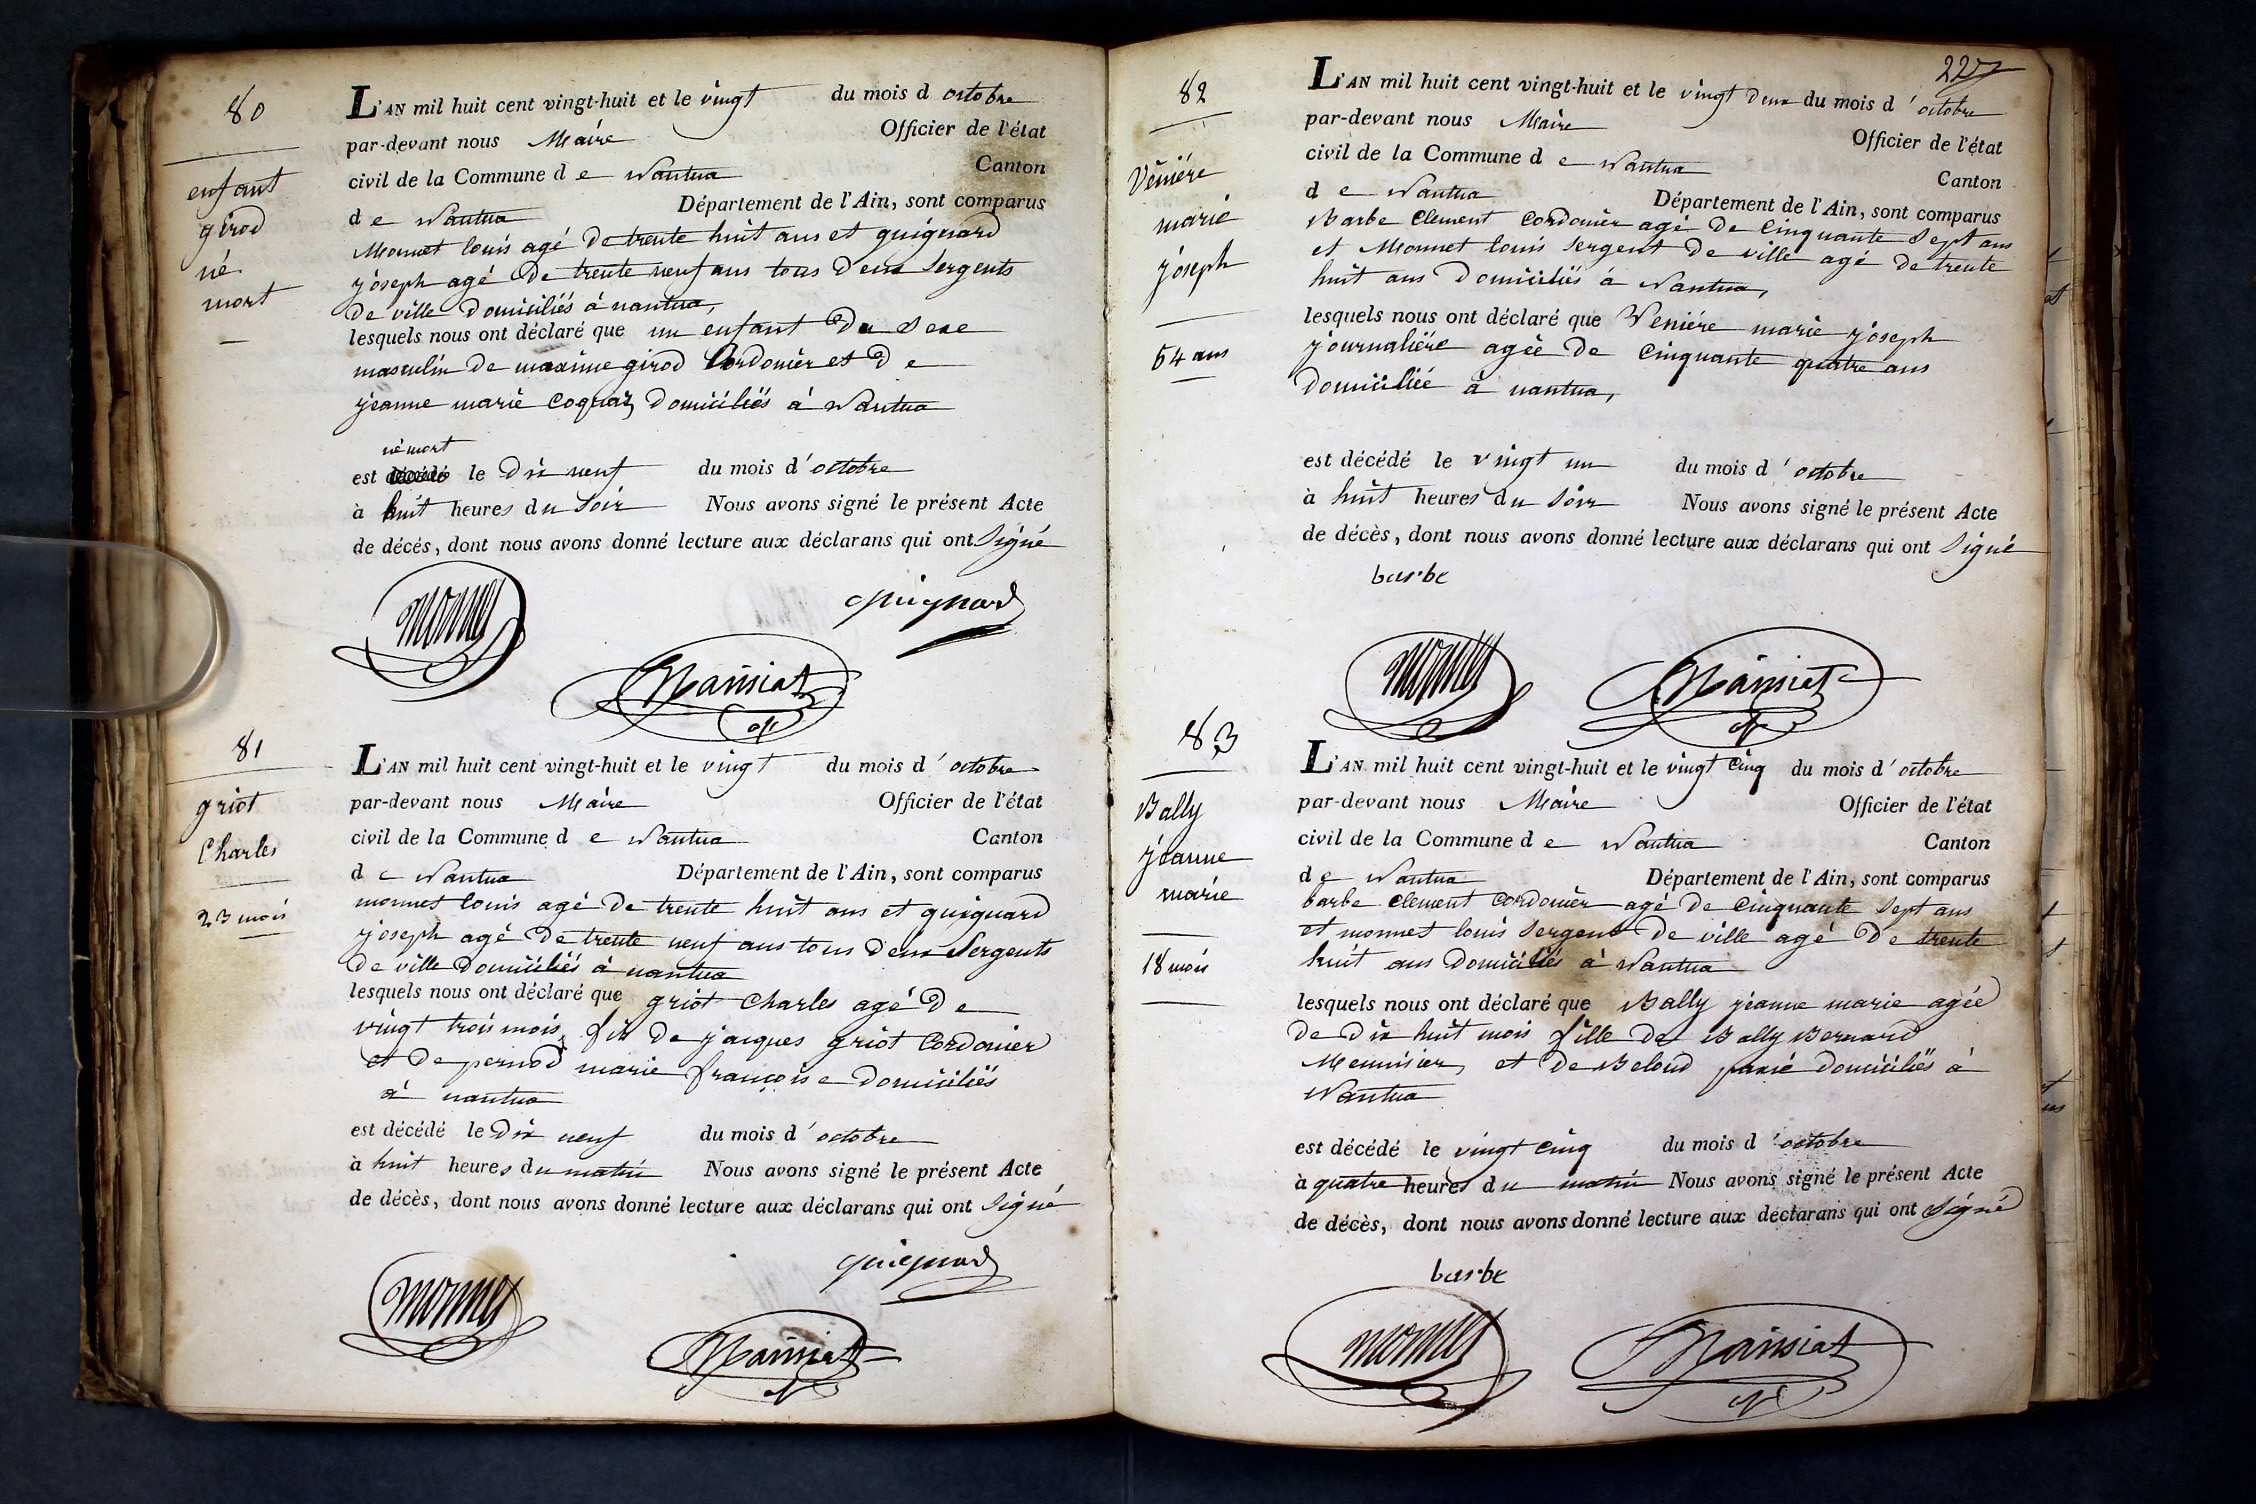 80
enfant
girod
né
mort
L'AN mil huit cent vingt-huit et le vingt du mois d octobre
par-devant nous Maire Officier de l'état
civil de la Commune d e Nantua Canton
d e Nantua Département de l'Ain, sont comparus
Monnet louis agé De trente huit ans et guignard
joseph agé De trente neuf ans tous Deux Sergents
De ville Domiciliés à nantua,
lesquels nous ont déclaré que un enfant Du Sexe
masculin De maxime girod Cordonier et D e
jeanne marie Coquaz Domiciliés à Nantua
né mort
est décédé le Dix neuf du mois d'octobre
à huit heures du Soir Nous avons signé le présent Acte
de décés, dont nous avons donné lecture aux déclarans qui ont Signé
monnet
guignard
Mainiat
81
griot
Charles
23 mois
L'AN mil huit cent vingt-huit et le vingt du mois d'octobre
par-devant nous Maire Officier de l'état
civil de la Commune d e Nantua Canton
d e Nantua Département de l'Ain, sont comparus
monnet louis agé De trente huit ans et guignard
joseph agé De trente neuf ans tous Deux Sergents
De ville Domiciliés à nantua
lesquels nous ont déclaré que griot Charles agé D e
vingt trois mois, fils De jacques griot Cordonier
et De pernod marie françoise Domiciliés
à nantua
est décédé le Dix neuf du mois d'octobre
à huit heures du matin Nous avons signé le présent Acte
de décès, dont nous avons donné lecture aux déclarans qui ont Signé
guignard
monnet
Mainiat
227
82
Vénière
marie
joseph
54 ans
L'AN mil huit cent vingt-huit et le vingt Deux du mois d'octobre
par-devant nous Maire Officier de l'état
civil de la Commune d e Nantua Canton
d e Nantua Département de l'Ain, sont comparus
Barbe Clement Cordonier agé De Cinquante Sept ans
et Monnet louis Sergent De ville agé De trente
huit ans Domiciliés à Nantua,
lesquels nous ont déclaré que Veniére marie joseph
journaliére agée De Cinquante quatre ans
Domiciliée à nantua,
est décédé le vingt un du mois d'octobre
à huit heures du Soir Nous avons signé le présent Acte
de décès, dont nous avons donné lecture aux déclarans qui ont Signé
barbe
monnet
Mainiat
83
Bally
jeanne
marie
18 mois
L'AN mil huit cent vingt-huit et le vingt Cinq du mois d'octobre
par-devant nous Maire Officier de l'état
civil de la Commune d e Nantua Canton
d e Nantua Département de l'Ain, sont comparus
barbe Clement Cordonier agé De Cinquante Sept ans
et monnet louis Sergent De ville agé De trente
huit ans Domiciliés à Nantua
lesquels nous ont déclaré que Bally jeanne marie agée
De Dix huit mois fille De Bally Bernard
Menuisier, et De Beloud Domiciliés à
Nantua
est décédé le vingt Cinq du mois d'octobre
à quatre heures du matin Nous avons signé le présent Acte
de décès, dont nous avons donné lecture aux déclarans qui ont Signé
barbe
monnet
Mainiat